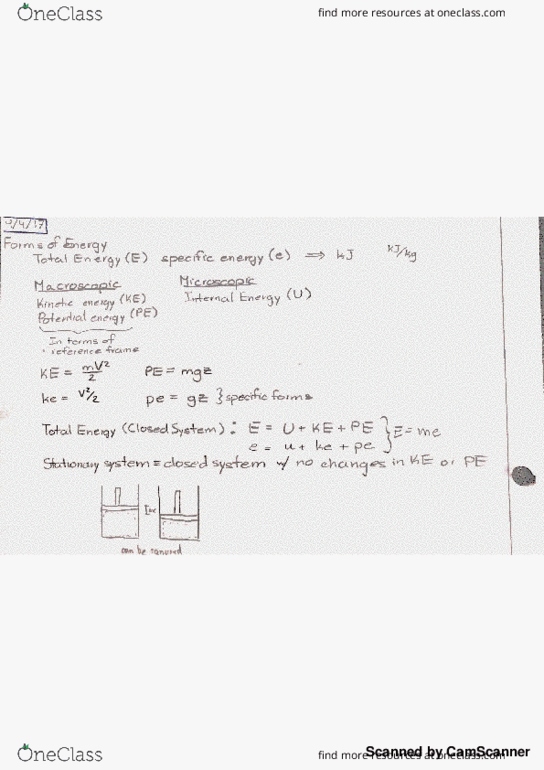 OneClass
find more resources at oneclass.com
Forms of Energy
Total Energy (E) specific energy (e) ⇒ kJ kJ/kg
Macroscopic
Microscopic
Kinetic energy (KE)
Internal Energy (U)
Potential energy (PE)
In terms of
reference frame
KE = mV²/2 PE = mgz
ke = V²/2 pe = gz } specific forms
Total Energy (Closed System): E = U + KE + PE
e = u + ke + pe } E = me
Stationary system = closed system w/ no changes in KE or PE
can be
OneClass
find more resources at oneclass.com
Scanned by CamScanner